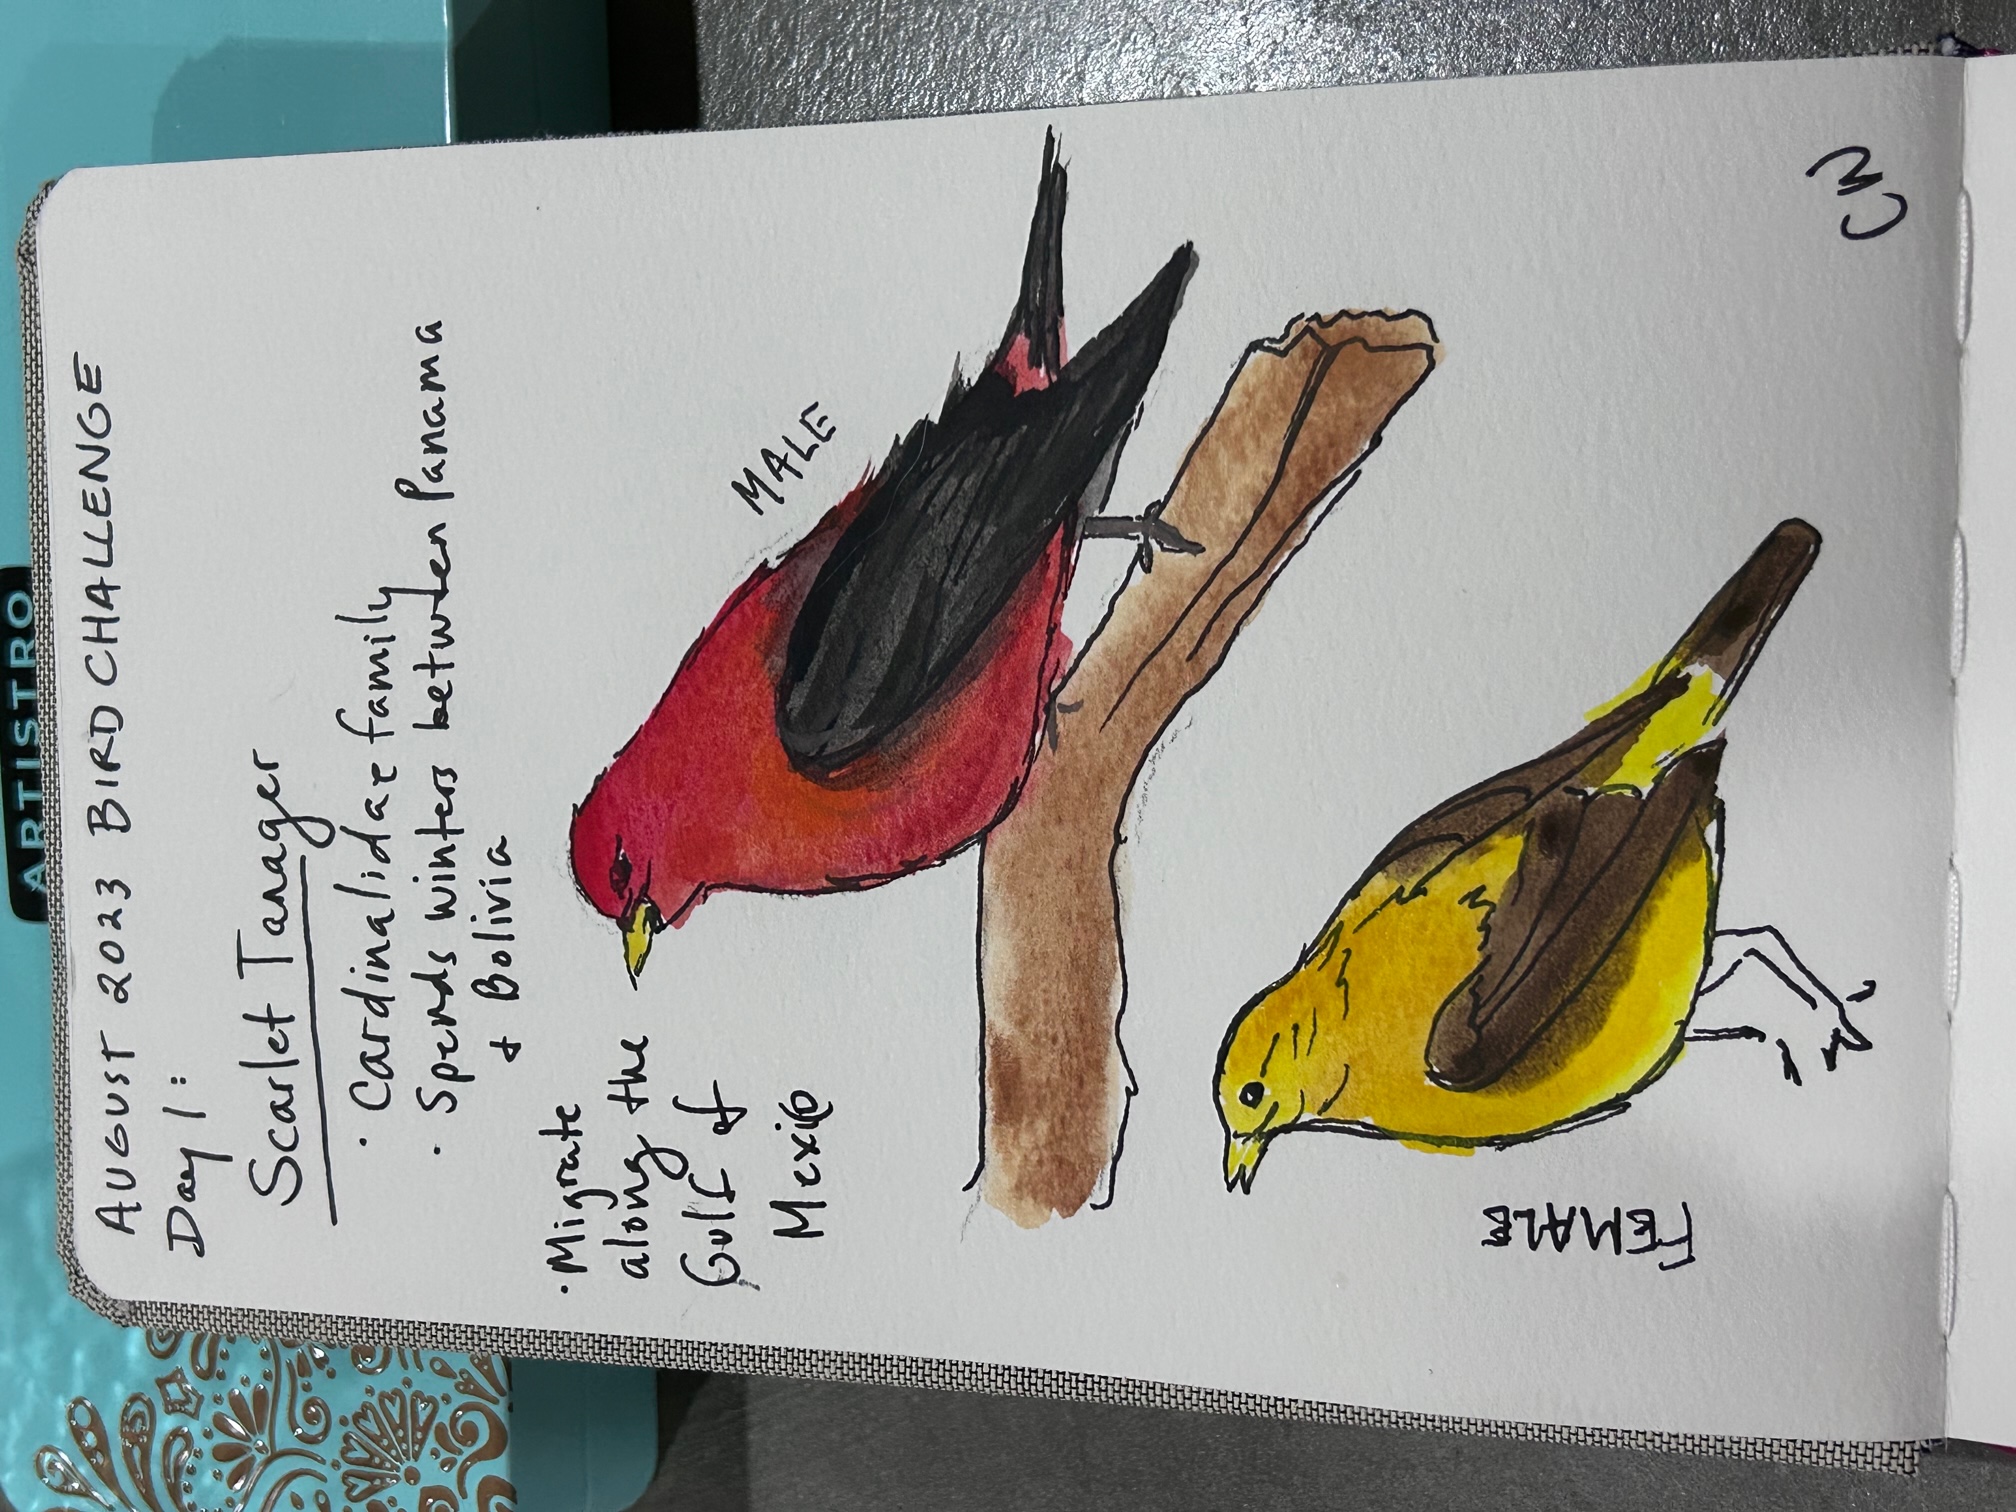 ARTISTRO
AUGUST 2023 BIRD CHALLENGE
Day 1:
Scarlet Tanager
· Cardinalidae family
· Spends winters between Panama
+ Bolivia
· Migrate
along the
Gulf of
Mexico
MALE
FEMALE
CW